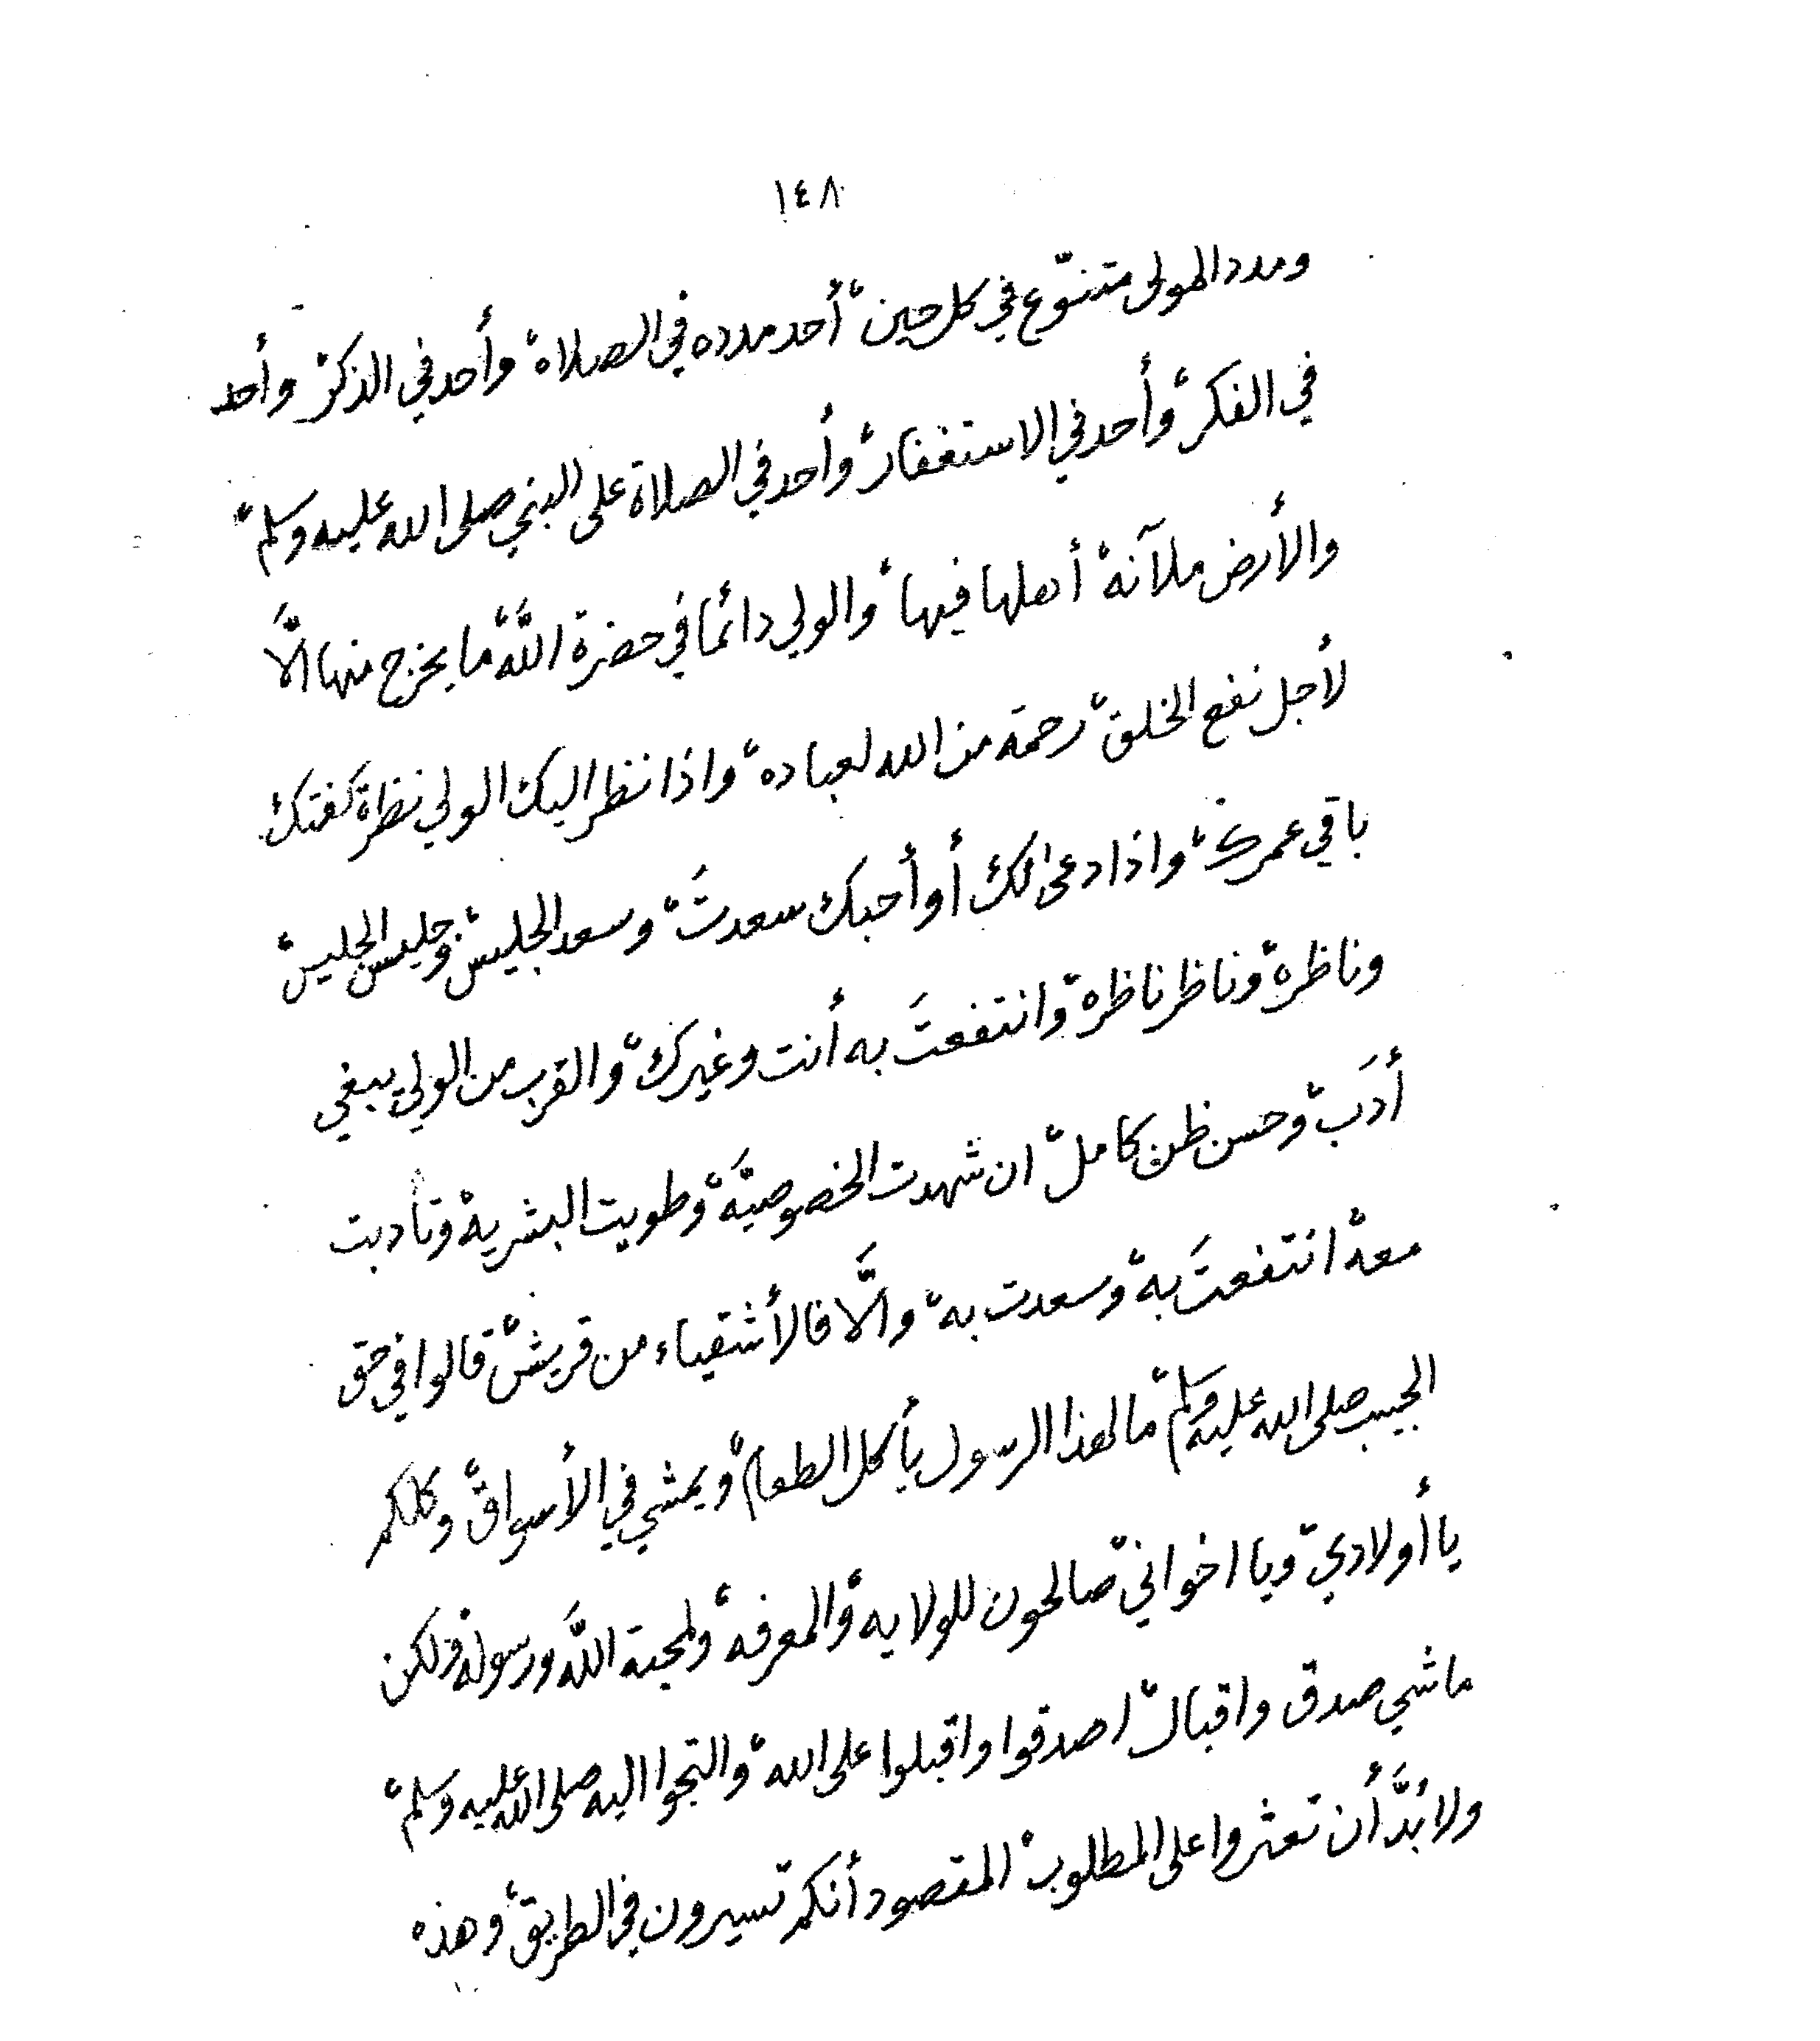 ١٤٨
ومدد المولى متنوّع في كل حين، أحد مدده في الصلاة، وأحد في الذكر، وأحد
في الفكر، وأحد في الاستغفار، وأحد في الصلاة على النبي صلى الله عليه وسلم،
والأرض ملآنة، أهلها فيها، والولي دائما في حضرة اللَّه، ما يخرج منها الَّا
لأجل نفع الخلق، رحمة من الله لعباده، واذا نظر اليك الولي نظرة كفتك
باقي عمرك، واذا دعى لك أو أحبك سعدتَ، وسعد الجليس، وجليس الجليس،
وناظره، وناظر ناظره، وانتفعتَ به أنت وغيرك، والقرب من الولي يبغي
أدَب، وحسن ظن كامل، ان شهدت الخصوصيَّة، وطويت البشرية، وتأدبت
معه، انتفعتَ به، وسعدت به، والَّا فالأشقياء من قريش، قالوا في حق
الحبيب صلى الله عليه وسلم، مالهذا الرسول يأكل الطعام، ويمشي في الأسواق، وكلكم
يا أولادي، ويا اخواني، صالحون للولايه، والمعرفه، ولمحبة اللَّه ورسوله، ولكن
ماشي صدق واقبال، اصدقوا واقبلوا على الله، والتجوا اليه صلى الله عليه وسلم،
ولا بُدَّ أن تعثروا على المطلوب، المقصود أنكم تسيرون في الطريق، وهذه